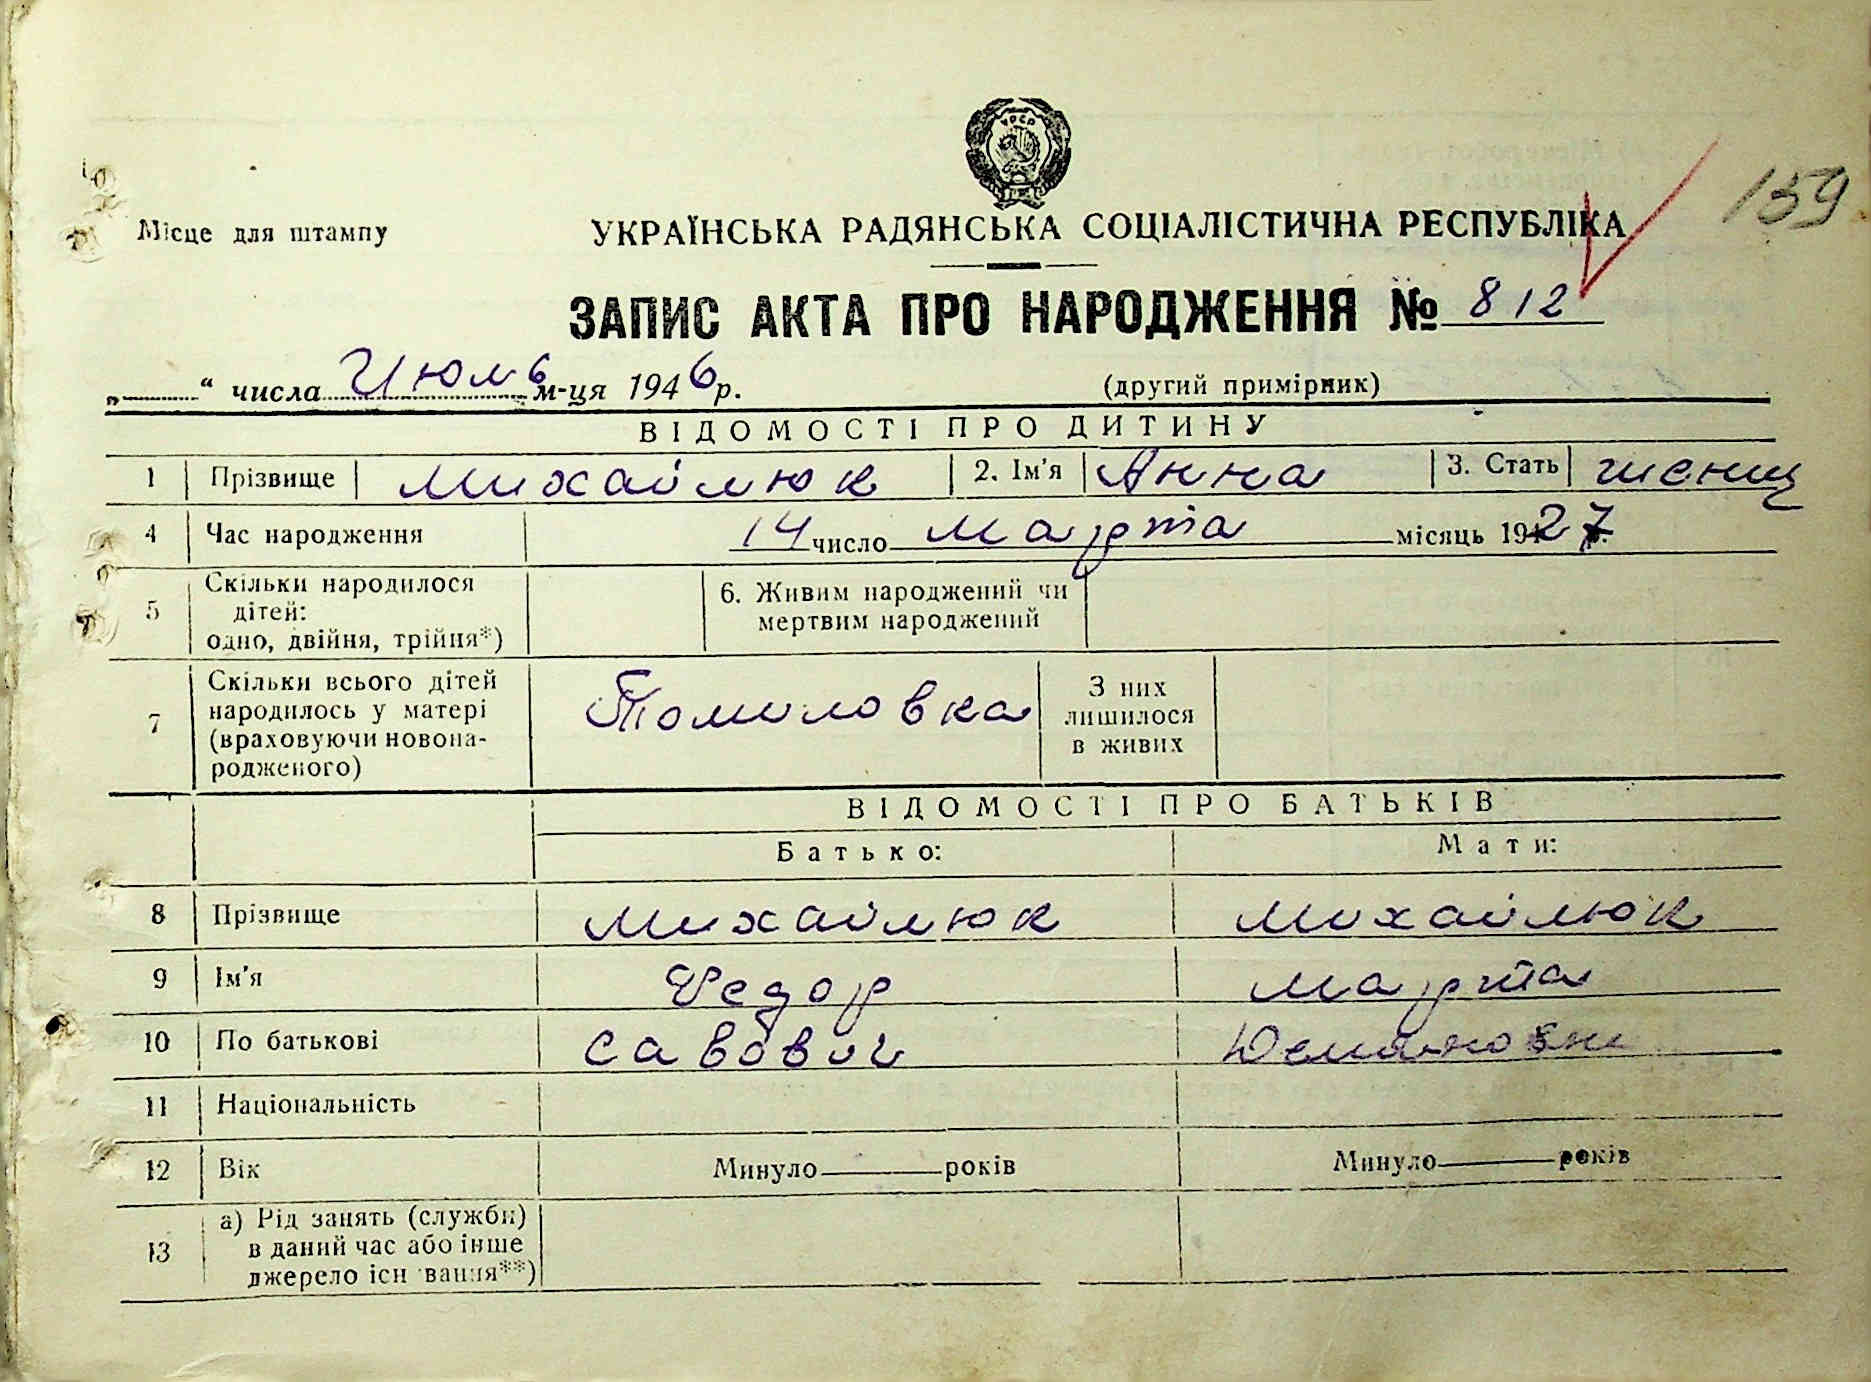 УРСР
159
Місце для штампу
УКРАЇНСЬКА РАДЯНСЬКА СОЦІАЛІСТИЧНА РЕСПУБЛІКА
ЗАПИС АКТА ПРО НАРОДЖЕННЯ № 812
„ “ числа Июль м-ця 1946 р.
(другий примірник)
ВІДОМОСТІ ПРО ДИТИНУ
1 Прізвище Михайлюк 2. Ім'я Анна 3. Стать женщ
4 Час народження 14 число Марта місяць 1927
5 Скільки народилося
дітей:
одно, двійня, трійня*)
6. Живим народжений чи
мертвим народжений
7 Скільки всього дітей
народилось у матері
(враховуючи новона-
родженого)
Томиловка
З них
лишилося
в живих
ВІДОМОСТІ ПРО БАТЬКІВ
Батько: Мати:
8 Прізвище Михайлюк Михайлюк
9 Ім'я Федор Марта
10 По батькові Савович
11 Національність
12 Вік Минуло років Минуло років
13 а) Рід занять (служби)
в даний час або інше
джерело існ вання**)